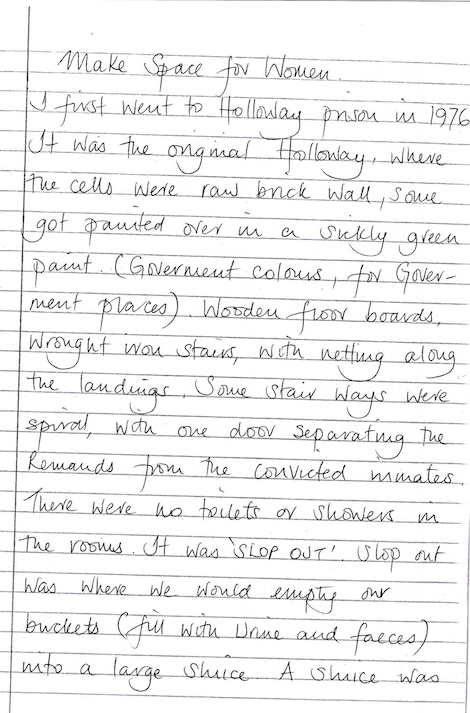 Make Space for Women.
I first went to Holloway prison in 1976
It was the original Holloway, where
the cells were raw brick wall, some
got painted over in a sickly green
paint. (Goverment colours, for Gover-
ment places). Wooden floor boards,
wrought iron stairs, with netting along
the landings. Some stair ways were
spiral, with one door separating the
Remands from the convicted inmates.
There were no toilets or showers in
the rooms. It was 'SLOP OUT'. Slop out
was where we would empty our
buckets (fill with Urine and faeces)
into a large Sluice. A Sluice was